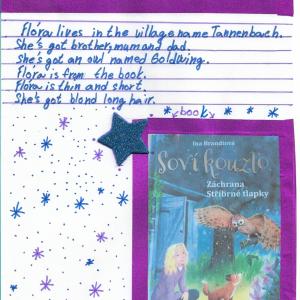 Flóra lives in the village name Tannenbach.
She's got brother, mum and dad.
She's got an owl named Goldwing.
Flora is from the book.
Flora is thin and short.
She's got blond long hair.
book
Ina Brandtová
Soví kouzlo
Záchrana
Stříbrné tlapky